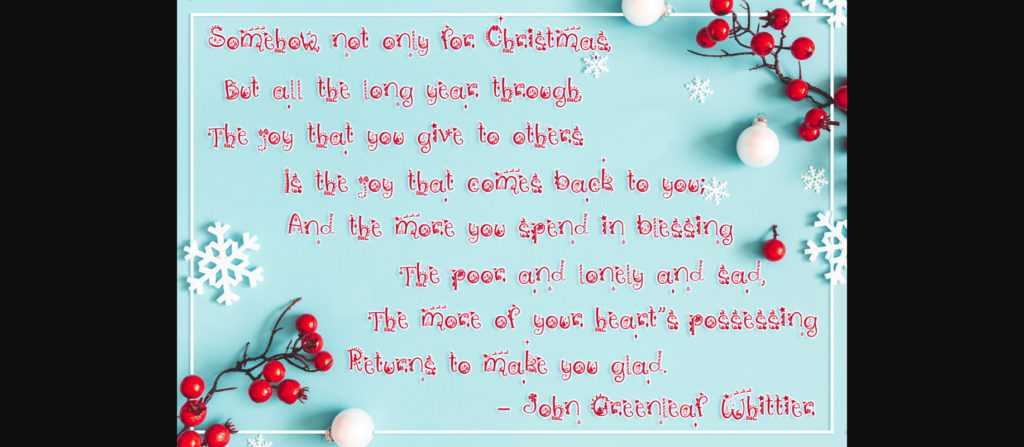 Somehow, not only for Christmas,
But all the long year through,
The joy that you give to others
Is the joy that comes back to you;
And the more you spend in blessing
The poor and lonely and sad,
The more of your heart"s possessing
Returns to make you glad.
– John Greenleaf Whittier